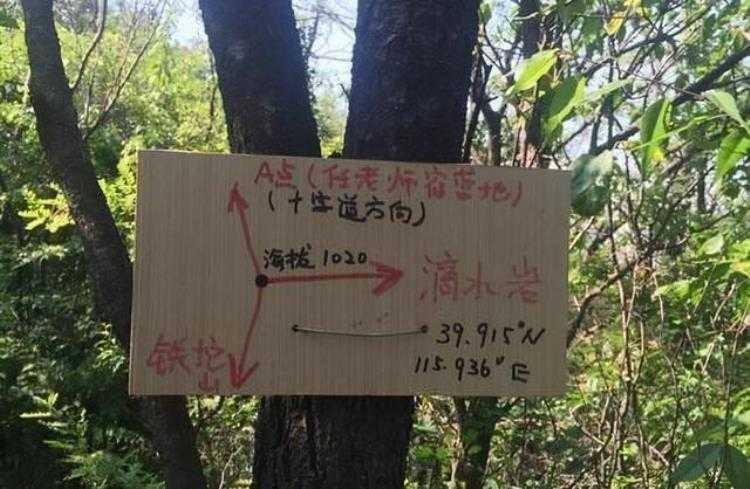 A点(任老师宿营地)
(十字道方向)
海拔1020
滴水岩
铁坨
山
39.915°N
115.936°E